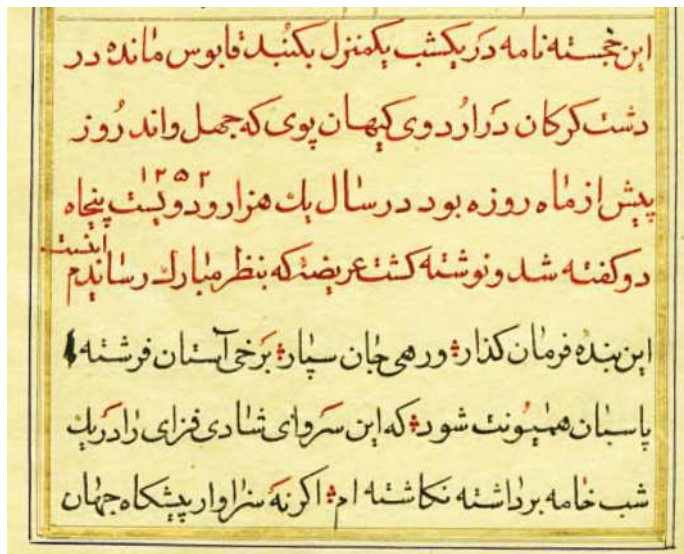 این خجسته نامه در یکشب یکمنزل بکنبد قابوس مانده در
دشت کرکان در اردوی کیهان پوی که چهل واند روز
پیش از ماه روزه بود در سال یك هزار ودویست پنجاه
۱۲۵۲
دو کفته شد و نوشته کشت عریضه که بنظر مبارك رساندم
اینست
این بنده فرمان کذار ورهی جان سپار برخی آستان فرشته
پاسبان همیونت شود که این سروای شادی فزای را در یك
شب خامه برداشته نکاشته ام اکرنه سزاوار پیشکاه جهان